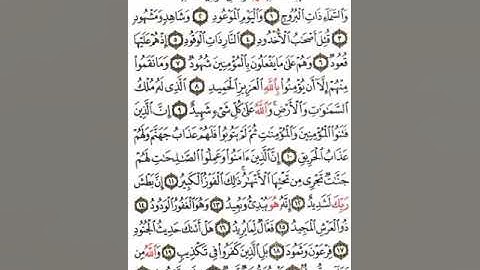 وَالسَّمَاءِ ذَاتِ الْبُرُوجِ ١ وَالْيَوْمِ الْمَوْعُودِ ٢ وَشَاهِدٍ وَمَشْهُودٍ
٣ قُتِلَ أَصْحَابُ الْأُخْدُودِ ٤ النَّارِ ذَاتِ الْوَقُودِ ٥ إِذْ هُمْ عَلَيْهَا
قُعُودٌ ٦ وَهُمْ عَلَىٰ مَا يَفْعَلُونَ بِالْمُؤْمِنِينَ شُهُودٌ ٧ وَمَا نَقَمُوا
مِنْهُمْ إِلَّا أَن يُؤْمِنُوا بِاللَّهِ الْعَزِيزِ الْحَمِيدِ ٨ الَّذِي لَهُ مُلْكُ
السَّمَاوَاتِ وَالْأَرْضِ وَاللَّهُ عَلَىٰ كُلِّ شَيْءٍ شَهِيدٌ ٩ إِنَّ الَّذِينَ
فَتَنُوا الْمُؤْمِنِينَ وَالْمُؤْمِنَاتِ ثُمَّ لَمْ يَتُوبُوا فَلَهُمْ عَذَابُ جَهَنَّمَ وَلَهُمْ
عَذَابُ الْحَرِيقِ ١٠ إِنَّ الَّذِينَ آمَنُوا وَعَمِلُوا الصَّالِحَاتِ لَهُمْ
جَنَّاتٌ تَجْرِي مِن تَحْتِهَا الْأَنْهَارُ ذَٰلِكَ الْفَوْزُ الْكَبِيرُ ١١ إِنَّ بَطْشَ
رَبِّكَ لَشَدِيدٌ ١٢ إِنَّهُ هُوَ يُبْدِئُ وَيُعِيدُ ١٣ وَهُوَ الْغَفُورُ الْوَدُودُ ١٤
ذُو الْعَرْشِ الْمَجِيدُ ١٥ فَعَّالٌ لِّمَا يُرِيدُ ١٦ هَلْ أَتَاكَ حَدِيثُ الْجُنُودِ
١٧ فِرْعَوْنَ وَثَمُودَ ١٨ بَلِ الَّذِينَ كَفَرُوا فِي تَكْذِيبٍ ١٩ وَاللَّهُ مِن